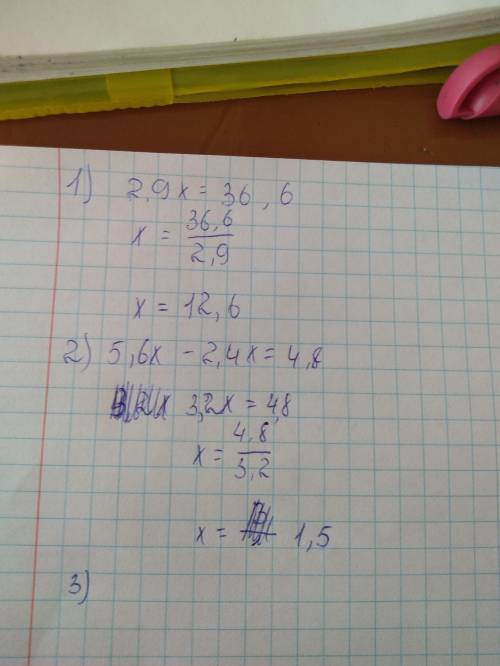 1) 2,9x = 36,6
x = 36,6 / 2,9
x = 12,6
2) 5,6x - 2,4x = 4,8
3,2x = 4,8
x = 4,8 / 3,2
x = 1,5
3)